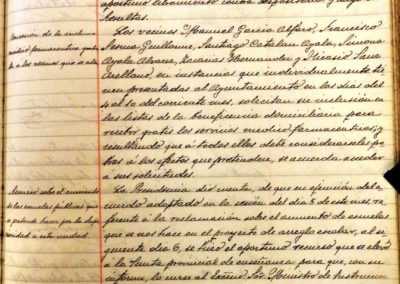 oportuno libramiento contra
Resultas.
Concesión de la asistencia
médico farmacéutica gratui-
ta á los vecinos que se citan
Los vecinos Manuel García Alfaro, Francisco
Guillorme, Santiago Catalán Ayala, Simona
Ayala Zacarías Hernández y Nicasio Sanz
Arellano, en instancias que individualmente tie-
nen presentadas al Ayuntamiento en los días del
4 al 10 del corriente mes, solicitan su inclusión en
las listas de la beneficencia domiciliaria para
recibir gratis los servicios médico farmacéuticos; y
resultando que á todos ellos debe considerárseles po-
bres á los efectos que pretenden, se acuerda acceder
á sus solicitudes.
Acuerdo sobre el aumento
de las escuelas públicas que
se pretende hacer por la Supe-
rioridad á esta ciudad.
La Presidencia dió cuenta, de que en ejecución del a-
cuerdo adoptado en la sesión del día 5 de este mes re-
ferente á la reclamación sobre el aumento de escuelas
que se nos hace en el proyecto de arreglo escolar, al si-
guiente día 6, se hizo el oportuno recurso que se elevó
á la Junta provincial de enseñanza para que, con su
informe, lo curse al Excmo. Sor. Ministro de Instrucción